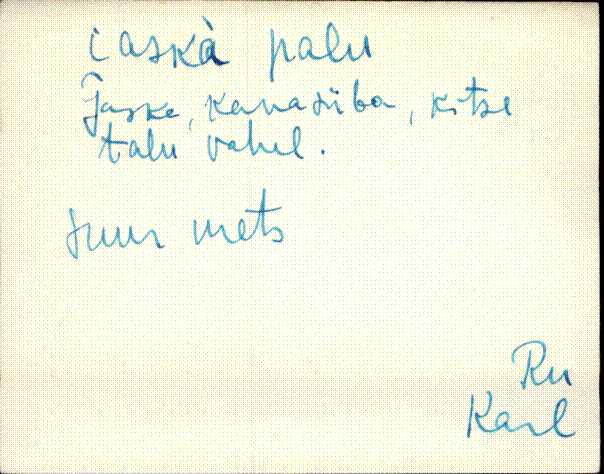 iaskà palu
Jaske, kanasüba, kitse
talu vahel.
suur mets
Ru
Karl